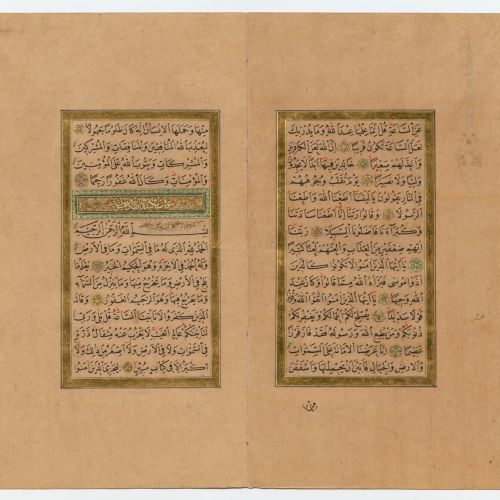 عَنِ السَّاعَةِ قُلْ اِنَّمَا عِلْمُهَا عِنْدَ اللّٰهِ وَمَا يُدْرِيكَ
لَعَلَّ السَّاعَةَ تَكُونُ قَرِيبًا اِنَّ اللّٰهَ لَعَنَ الْكَافِرِينَ
وَاَعَدَّ لَهُمْ سَعِيرًا خَالِدِينَ فِيهَا اَبَدًا لَا يَجِدُونَ
وَلِيًّا وَلَا نَصِيرًا يَوْمَ تُقَلَّبُ وُجُوهُهُمْ
فِي النَّارِ يَقُولُونَ يَا لَيْتَنَا اَطَعْنَا اللّٰهَ وَاَطَعْنَا
الرَّسُولَا وَقَالُوا رَبَّنَا اِنَّا اَطَعْنَا سَادَتَنَا
وَكُبَرَاءَنَا فَاَضَلُّونَا السَّبِيلَا رَبَّنَا
اٰتِهِمْ ضِعْفَيْنِ مِنَ الْعَذَابِ وَالْعَنْهُمْ لَعْنًا كَبِيرًا
يَا اَيُّهَا الَّذِينَ اٰمَنُوا لَا تَكُونُوا كَالَّذِينَ
اٰذَوْا مُوسٰى فَبَرَّاَهُ اللّٰهُ مِمَّا قَالُوا وَكَانَ عِنْدَ
اللّٰهِ وَجِيهًا يَا اَيُّهَا الَّذِينَ اٰمَنُوا اتَّقُوا اللّٰهَ وَقُولُوا
قَوْلًا سَدِيدًا يُصْلِحْ لَكُمْ اَعْمَالَكُمْ وَيَغْفِرْ لَكُمْ
ذُنُوبَكُمْ وَمَنْ يُطِعِ اللّٰهَ وَرَسُولَهُ فَقَدْ فَازَ فَوْزًا
عَظِيمًا اِنَّا عَرَضْنَا الْاَمَانَةَ عَلَى السَّمٰوَاتِ
وَالْاَرْضِ وَالْجِبَالِ فَاَبَيْنَ اَنْ يَحْمِلْنَهَا وَاَشْفَقْنَ
مِنْهَا وَحَمَلَهَا الْاِنْسَانُ اِنَّهُ كَانَ ظَلُومًا جَهُولًا
لِيُعَذِّبَ اللّٰهُ الْمُنَافِقِينَ وَالْمُنَافِقَاتِ وَالْمُشْرِكِينَ
وَالْمُشْرِكَاتِ وَيَتُوبَ اللّٰهُ عَلَى الْمُؤْمِنِينَ
وَالْمُؤْمِنَاتِ وَكَانَ اللّٰهُ غَفُورًا رَحِيمًا
بِسْمِ اللّٰهِ الرَّحْمٰنِ الرَّحِيمِ
اَلْحَمْدُ لِلّٰهِ الَّذِي لَهُ مَا فِي السَّمٰوَاتِ وَمَا فِي الْاَرْضِ
وَلَهُ الْحَمْدُ فِي الْاٰخِرَةِ وَهُوَ الْحَكِيمُ الْخَبِيرُ يَعْلَمُ
مَا يَلِجُ فِي الْاَرْضِ وَمَا يَخْرُجُ مِنْهَا وَمَا يَنْزِلُ مِنَ السَّمَاءِ
وَمَا يَعْرُجُ فِيهَا وَهُوَ الرَّحِيمُ الْغَفُورُ وَقَالَ
الَّذِينَ كَفَرُوا لَا تَأْتِينَا السَّاعَةُ قُلْ بَلٰى وَرَبِّي
لَتَأْتِيَنَّكُمْ عَالِمِ الْغَيْبِ لَا يَعْزُبُ عَنْهُ مِثْقَالُ ذَرَّةٍ
فِي السَّمٰوَاتِ وَلَا فِي الْاَرْضِ وَلَا اَصْغَرُ مِنْ ذٰلِكَ وَلَا
اَكْبَرُ اِلَّا فِي كِتَابٍ مُبِينٍ لِيَجْزِيَ الَّذِينَ اٰمَنُوا